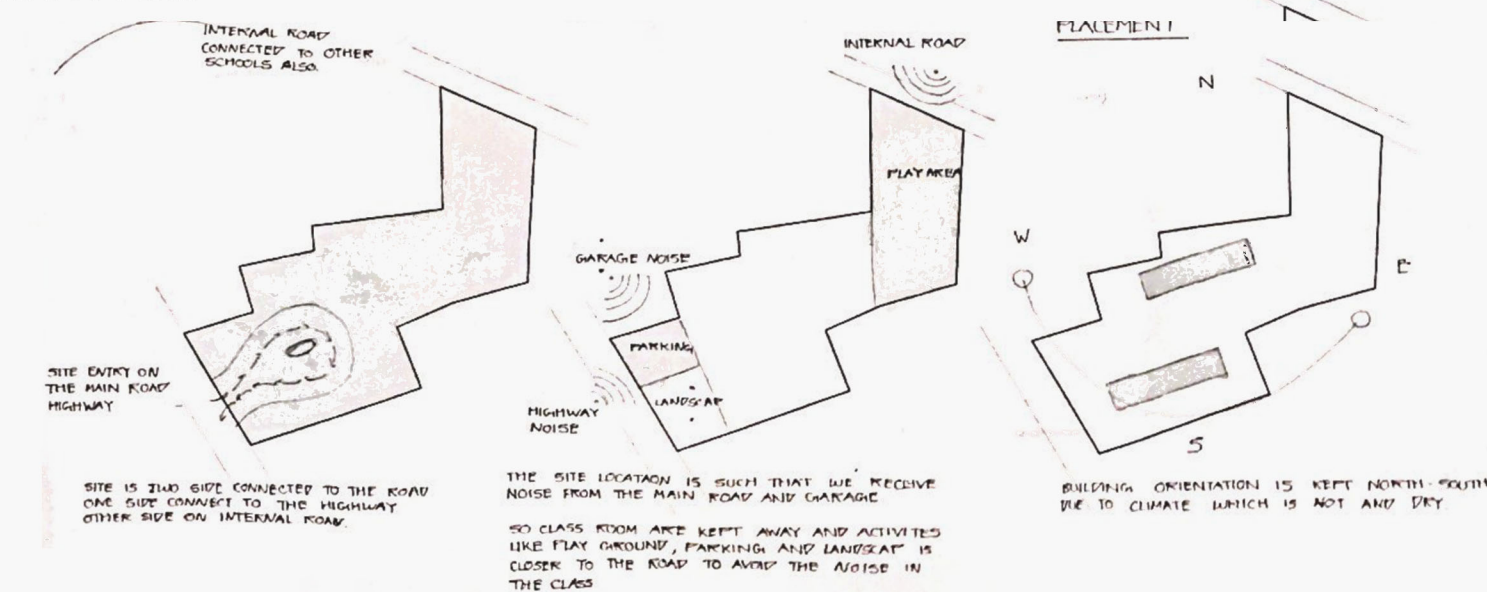 INTERNAL ROAD
CONNECTED TO OTHER
SCHOOLS ALSO.
SITE ENTRY ON
THE MAIN ROAD
HIGHWAY
SITE IS TWO SIDE CONNECTED TO THE ROAD
ONE SIDE CONNECT TO THE HIGHWAY
OTHER SIDE ON INTERNAL ROAD.
INTERNAL ROAD
PLAY AREA
GARAGE NOISE
PARKING
LANDSCAP
HIGHWAY
NOISE
THE SITE LOCATAON IS SUCH THAT WE RECEIVE
NOISE FROM THE MAIN ROAD AND GARAGE
SO CLASS ROOM ARE KEPT AWAY AND ACTIVITES
LIKE PLAY GROUND, PARKING AND LANDSCAP IS
CLOSER TO THE ROAD TO AVOID THE NOISE IN
THE CLASS
PLACEMENT
N
W
E
S
BUILDING ORIENTATION IS KEPT NORTH-SOUTH
DUE TO CLIMATE WHICH IS HOT AND DRY